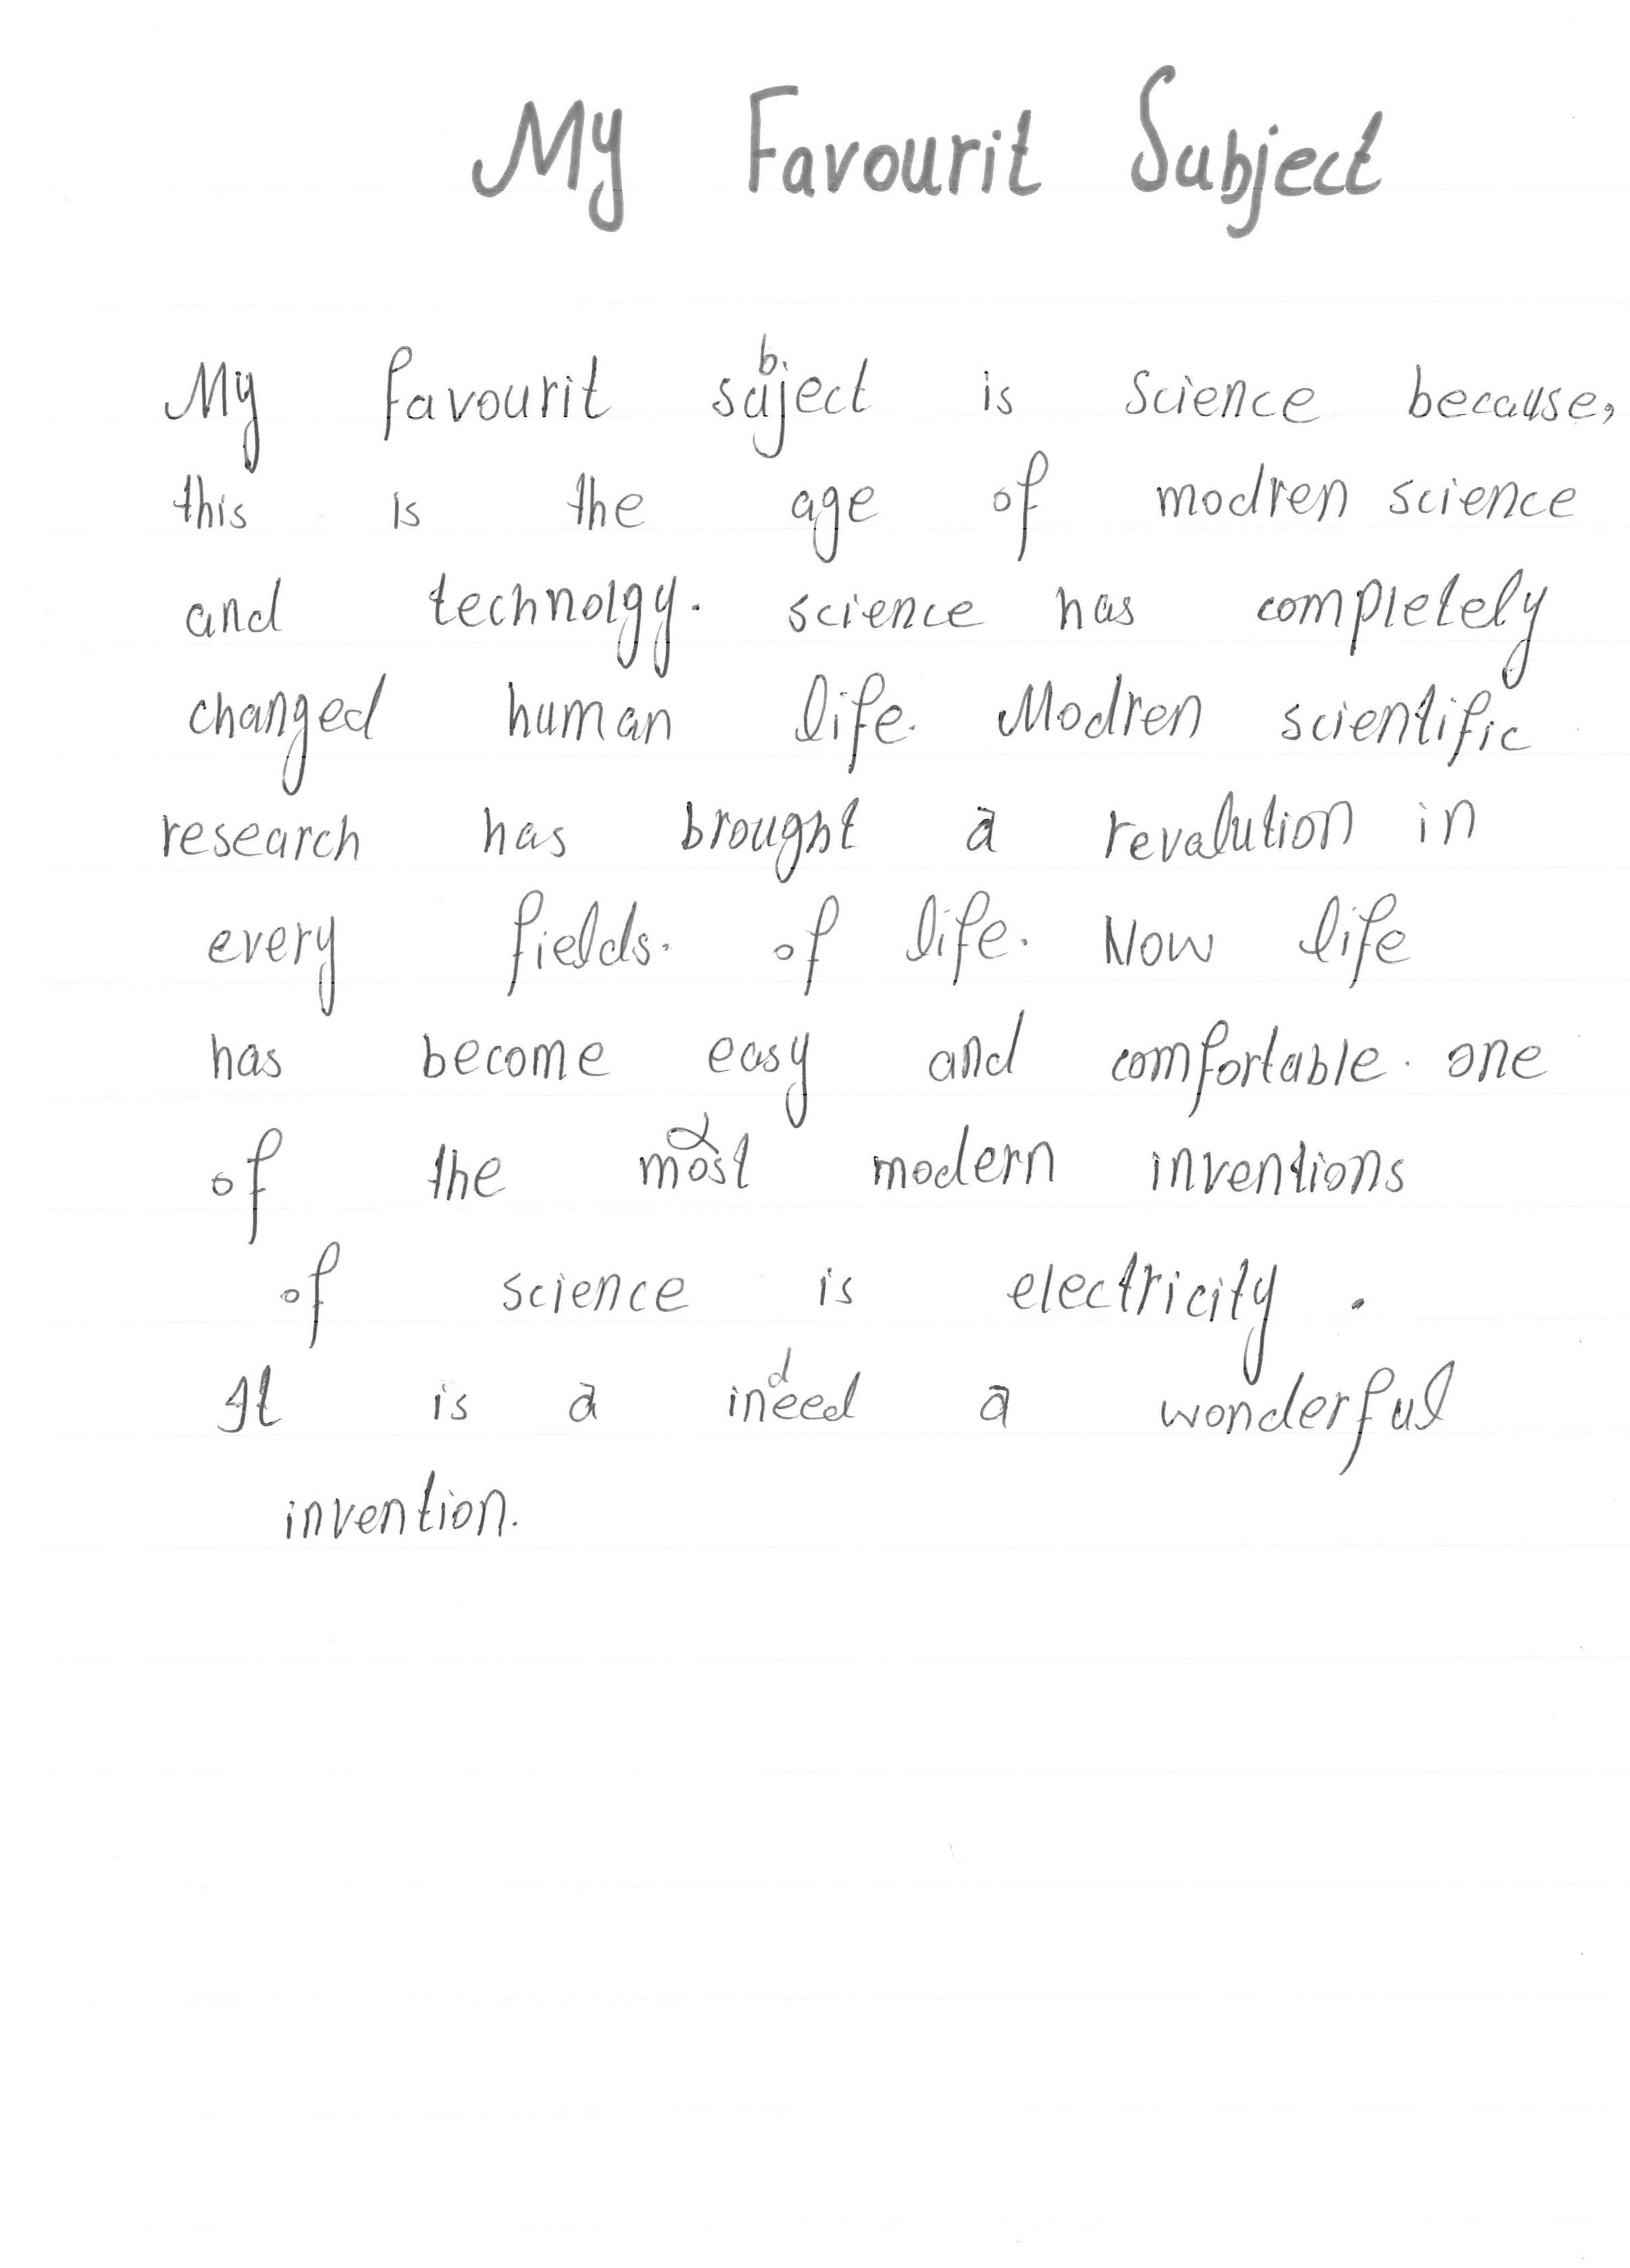 My Favourit Subject
My favourit subject is science because,
this is the age of modren science
and technolgy. science has completely
changed human life. Modren scientific
research has brought a revalution in
every fields. of life. Now life
has become easy and comfortable. one
of the most modern inventions
of science is electricity.
It is a indeed a wonderful
invention.